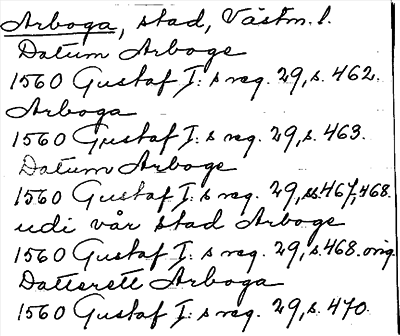 Arboga, stad, Västm. l.
Datum Arboge
1560 Gustaf I: s reg. 29, s. 462.
Arboga
1560 Gustaf I: s reg. 29, s. 463.
Datum Arboge
1560 Gustaf I: s reg. 29, ss. 467, 468.
udi vår stad Arboge
1560 Gustaf I: s reg. 29, s. 468. orig.
Datterett Arboga
1560 Gustaf I: s reg. 29, s. 470.